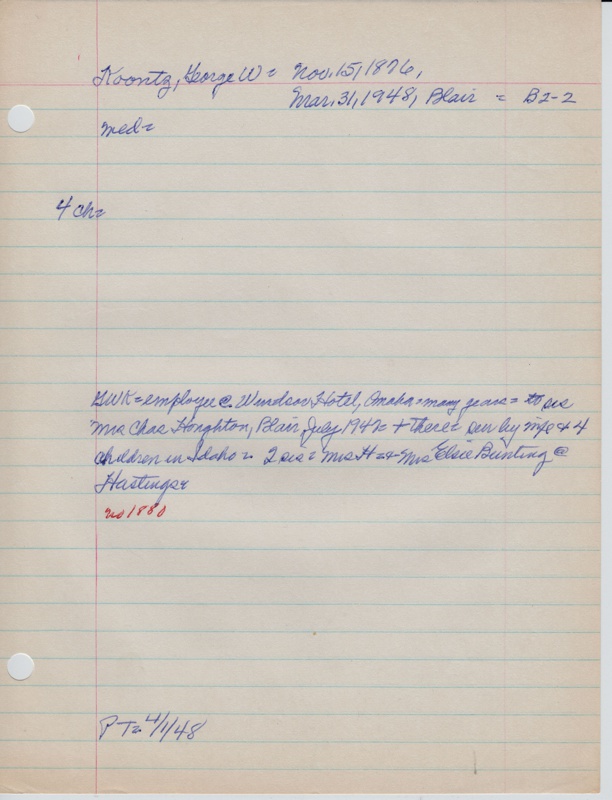 Koontz, George W = Nov. 15, 1876,
Mar. 31, 1948, Blair = B2-2
med=
4 ch=
GWK = employee @ Windsor Hotel, Omaha = many years = to sis
Mrs Chas Houghton, Blair, July 1947 = + there = sur by wife + 4
children in Idaho = 2 sis = Mrs H = + Mrs Elsie Bunting @
Hastings=
no 1880
PT= 4/1/48